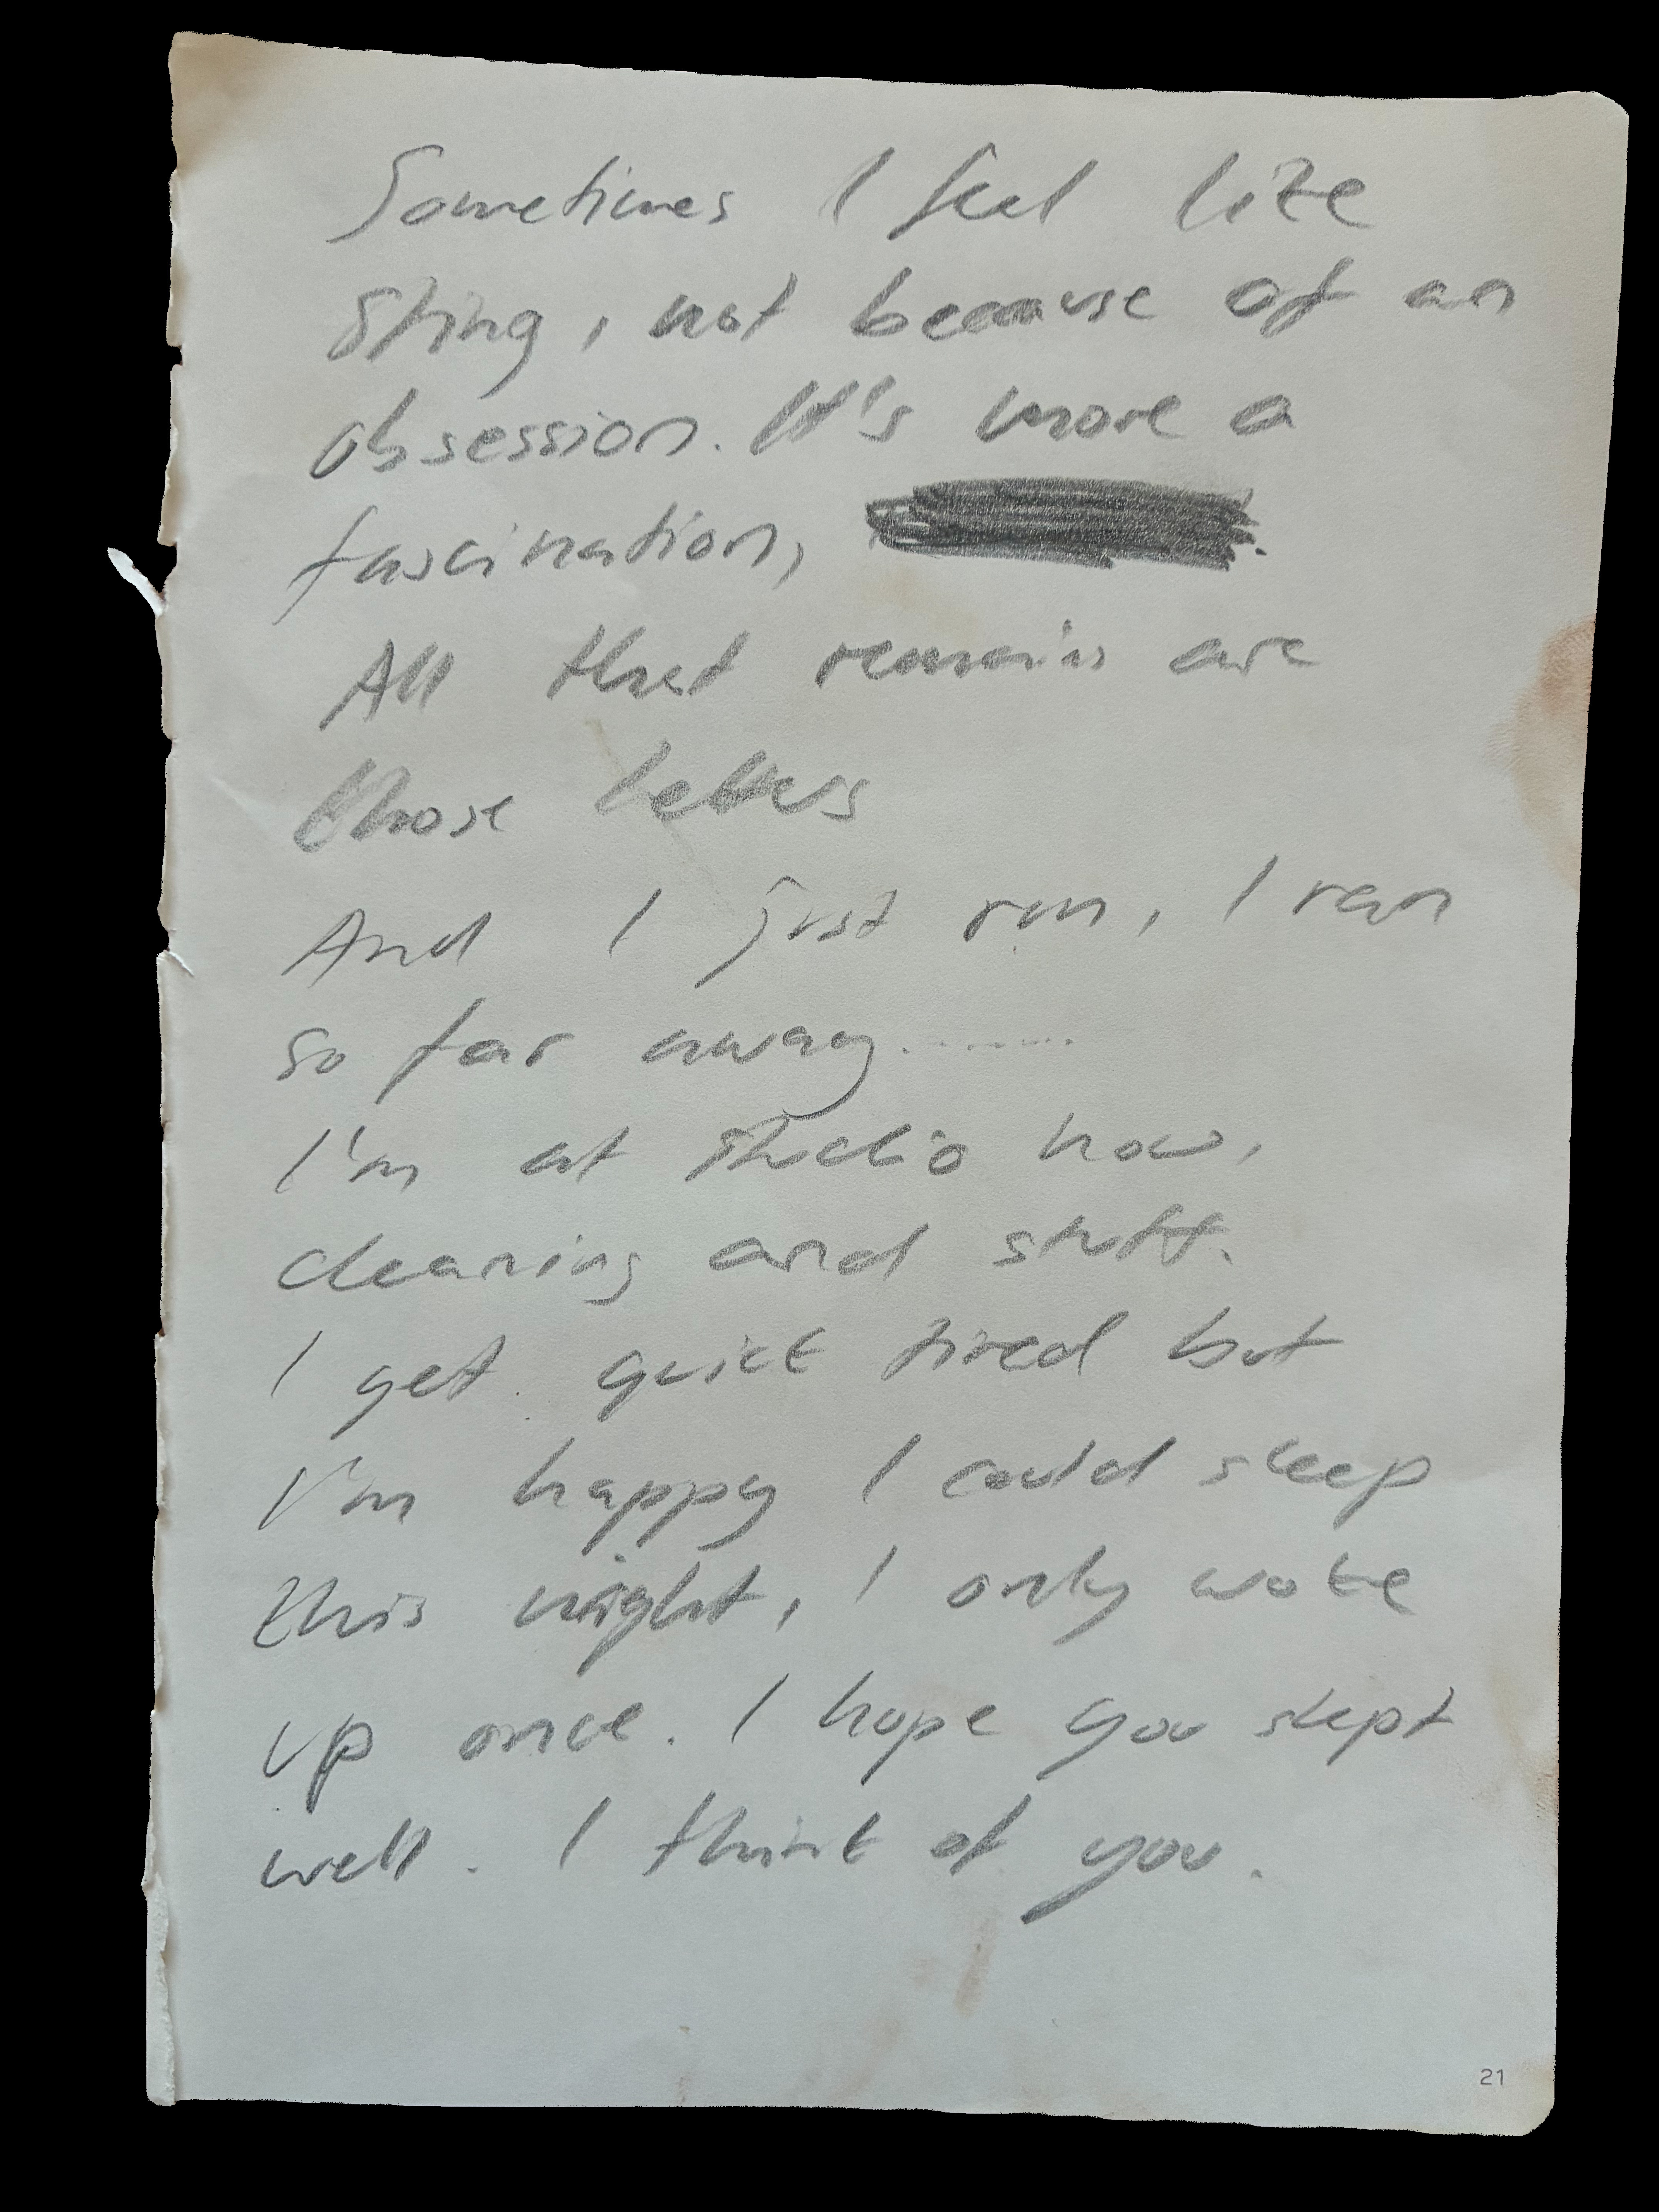 Sometimes I feel like
Sting, not because of an
obsession. It's more a
fascination,
All that remain are
those letters
And I just run, I ran
so far away.......
I'm at studio now,
cleaning and stuff.
I get quick tired but
I'm happy I could sleep
this night, I only woke
up once. I hope you slept
well. I think of you.
21